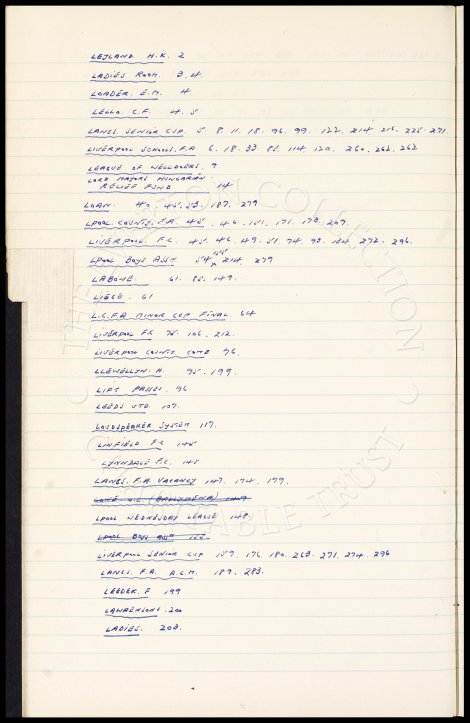 LEYLAND. H.K. 2
LADIES ROOM. 3.4.
LOADER. E.M. 4
LELLO. C.F. 4. 5
LANCS. SENIOR CUP. 5. 8. 11. 18. 96. 99. 122. 214 216. 225. 271.
LIVERPOOL SCHOOLS. F.A 6. 18. 33. 85. 114 120. 260. 262. 263.
LEAGUE OF WELLDOERS. 9
LORD MAYORS HUNGARIAN
RELIEF FUND 14
LOAN. 40. 45. 53. 187. 279
LPOOL. COUNTY. F.A. 45. 46. 151. 171. 178. 207.
LIVERPOOL. F.C. 45 46. 49. 51. 74. 93. 134 272. 296.
LPOOL BOYS ASSN. 54. 155 214 279
LABONE. 61. 85. 149.
LIEGE. 61
L.C.F.A MINOR CUP FINAL. 64
LIVERPOOL F.C. 75. 106. 212.
LIVERPOOL COUNTY COMB 76.
LLEWELLYN. H. 75. 199.
LIFT 96
LEEDS UTD. 107.
LOUDSPEAKER SYSTEM 117.
LINFIELD F.C. 145
LYNNDALE F.C. 145
LANCS. F.A. VACANCY 147. 174. 179.
LOVE (BALLYMENA) 149
LPOOL WEDNESDAY LEAGUE 148.
LPOOL BOYS ASSN 155
LIVERPOOL SENIOR CUP 157. 176 180. 263. 271. 274. 296
LANCS. F.A. A.G.M. 189. 283.
LEEDER. F 199
LAWRENSONS. 200
LADIES. 203.
THE COLLECTION
CHARITABLE TRUST